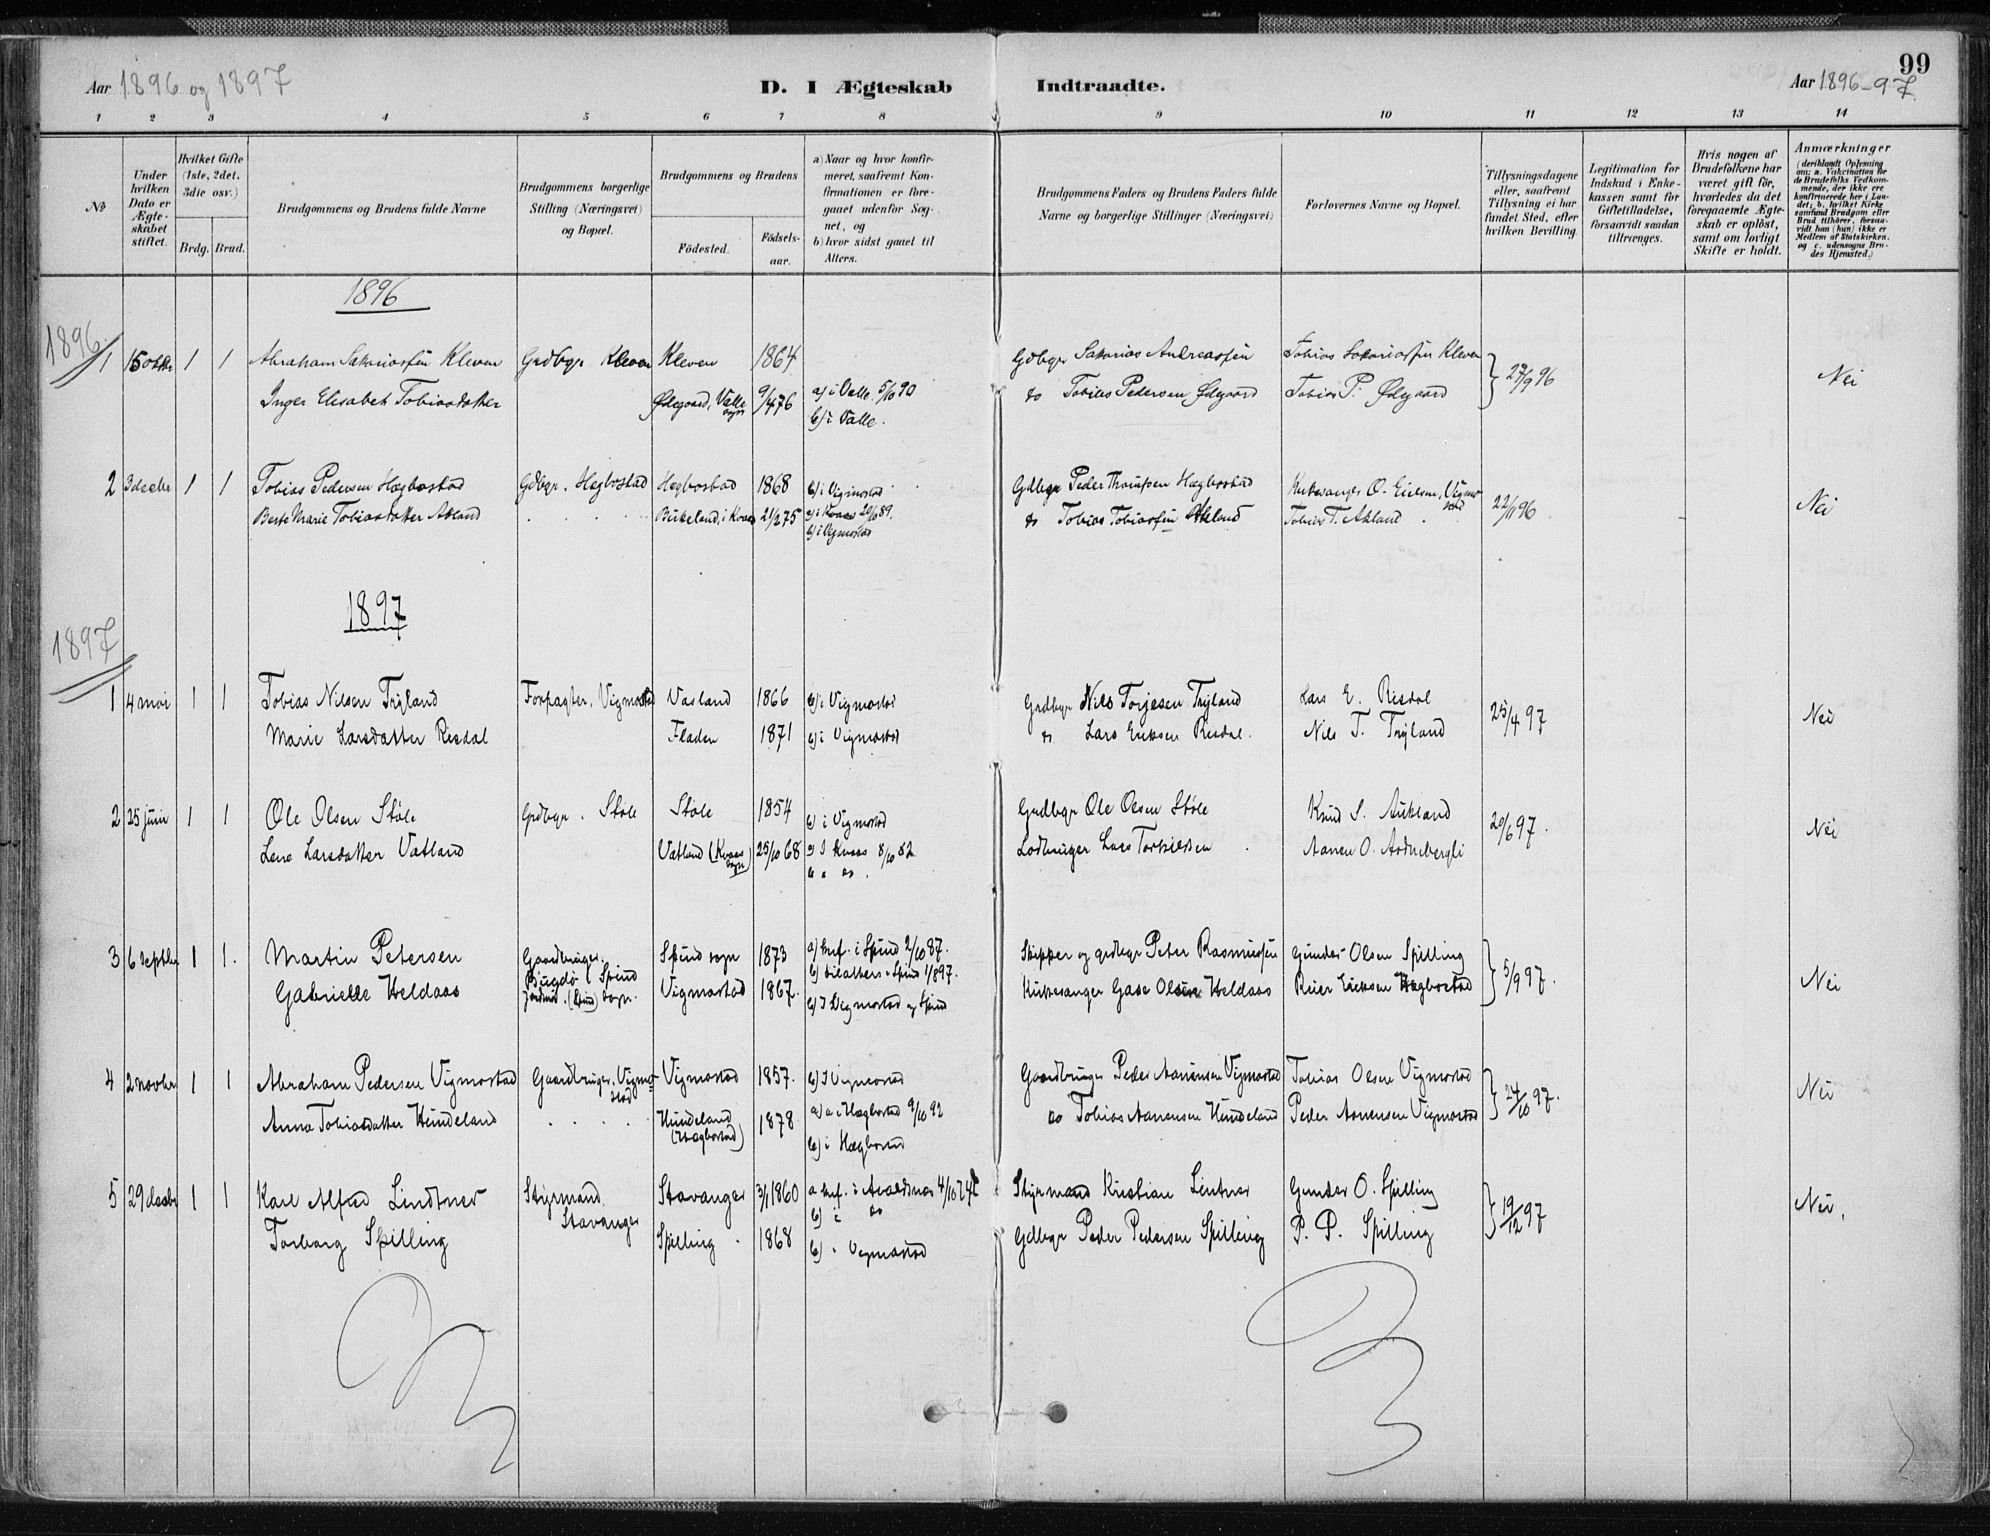 Aar 1896 og 1897
D. I Ægteskab Indtraadte.
99
Aar 1896-97.
1 2 3 4 5 6 7 8 9 10 11 12 13 14
No
Under hvilken Dato er Ægteskabet stiftet.
Hvilket Gifte (1ste, 2det, 3die osv.)
Brdg. Brud.
Brudgommens og Brudens fulde Navne
Brudgommens borgerlige Stilling (Næringsvei) og Bopæl.
Brudgommens og Brudens
Fødested.
Fødselsaar.
a) Naar og hvor konfirmeret, saafremt Konfirmationen er foregaaet udenfor Sognet, og
b) hvor sidst gaaet til Alters.
Brudgommens Faders og Brudens Faders fulde Navne og borgerlige Stillinger (Næringsvei)
Forlovernes Navne og Bopæl.
Tillysningsdagene eller, saafremt Tillysning ei har fundet Sted, efter hvilken Bevilling.
Legitimation for Indskud i Enkekassen samt for Giftetilladelse, forsaavidt saadan tiltrænges.
Hvis nogen af Brudefolkene har været gift før, hvorledes da det foregaaende Ægteskab er opløst, samt om lovligt Skifte er holdt.
Anmærkninger
(deriblandt Oplysning om: a. Vaccination for de Brudefolks Vedkommende, der ikke ere konfirmerede her i Landet; b. hvilket Kirkesamfund Brudgom eller Brud tilhører, forsaavidt han (hun) ikke er Medlem af Statskirken, og c. udensogns Brudes Hjemsted.)
1896
1896.
1 15 oktbr 1 1 Abraham Sakariassen Kleven Grdbgr Kleven Kleven 1864 Gdbgr Sakarias Andreassen Tobias Sakariassen Kleven 27/9 96 Nei
Inger Elisabet Tobiasdatter Ødegaard, Valle sogn 9/4 76 a) i Valle 5/10 90 do Tobias Pedersen Ødegaard Tobias P. Ødegaard
b) i Valle.
2 3 decbr 1 1 Tobias Pedersen Hægbostad Gdbgr. Hægbostad Hægbostad 1868 b) i Vigmostad Gdbgr Peder Thomesen Hægbostad Kirkesanger O. Eielsen, Vigmostad 22/11 96 Nei
Berte Marie Tobiasdatter Akland Birkeland, i Kvaas 21/2 75 a) i Kvaas 20/10 89. do Tobias Tobiassen Akland Tobias T. Akland
b) i Vigmostad
1897
1897
1 4 mai 1 1 Tobias Nilsen Trÿland Forpagter, Vigmostad Vasland 1866 b) i Vigmostad Grdbgr Nils Torjesen Trÿland Lars E. Risdal 25/4 97 Nei
Marie Larsdatter Risdal Fladen 1871 b) i Vigmostad do Lars Eriksen Risdal. Nils T. Trÿland
2 25 juni 1 1 Ole Olsen Støle Grdbgr. Støle Støle 1854 b) i Vigmostad Grdbgr Ole Olsen Støle Knud S. Aukland 20/6 97. Nei
Lene Larsdatter Vatland Vatland (Kvaas sogn) 25/10 68 a) I Kvaas 8/10 82 Lodbruger Lars Torkildsen Aanen O. Ardnebergli
b " do.
3 6 septbr 1 1. Martin Petersen Gaardbruger, Spind sogn 1873 a) knf. i Spind 2/10 87. Skipper og grdbgr Peter Rasmussen Gunder Olsen Spilling 5/9 97. Nei
(Spind) sogn. b) til alters i Spind 1/8 97.
Gabrielle Heldaas Vigmostad 1867. b) I Vigmostad og Spind Kirkesanger Gase Olsen Heldaas Reier Eriksen Hægbostad
4 2 novbr 1 1 Abraham Pedersen Vigmostad Gaardbruger, Vigmostad Vigmostad 1857. b) I Vigmostad Gaardbruger Peder Aanensen Vigmostad Tobias Olsen Vigmostad 24/10 97. Nei
Anna Tobiasdatter Hundeland Hundeland (Hægbostad) 1878 a) i Hægbostad 9/10 92 do Tobias Aanensen Hundeland Peder Aanensen Vigmostad
b) i Hægbostad
5 29 decbr 1 1 Karl Alfred Lindtner Styrmand Stavanger Stavanger 3/1 1860 a knf. i Avaldsnæs 4/10 74 Styrmand Kristian Lintner Gunder O. Spilling 19/12 97 Nei.
b) i do
Torborg Spilling Spilling 1868 b) i Vigmostad Gdbgr Peder Pedersen Spilling P. P. Spilling